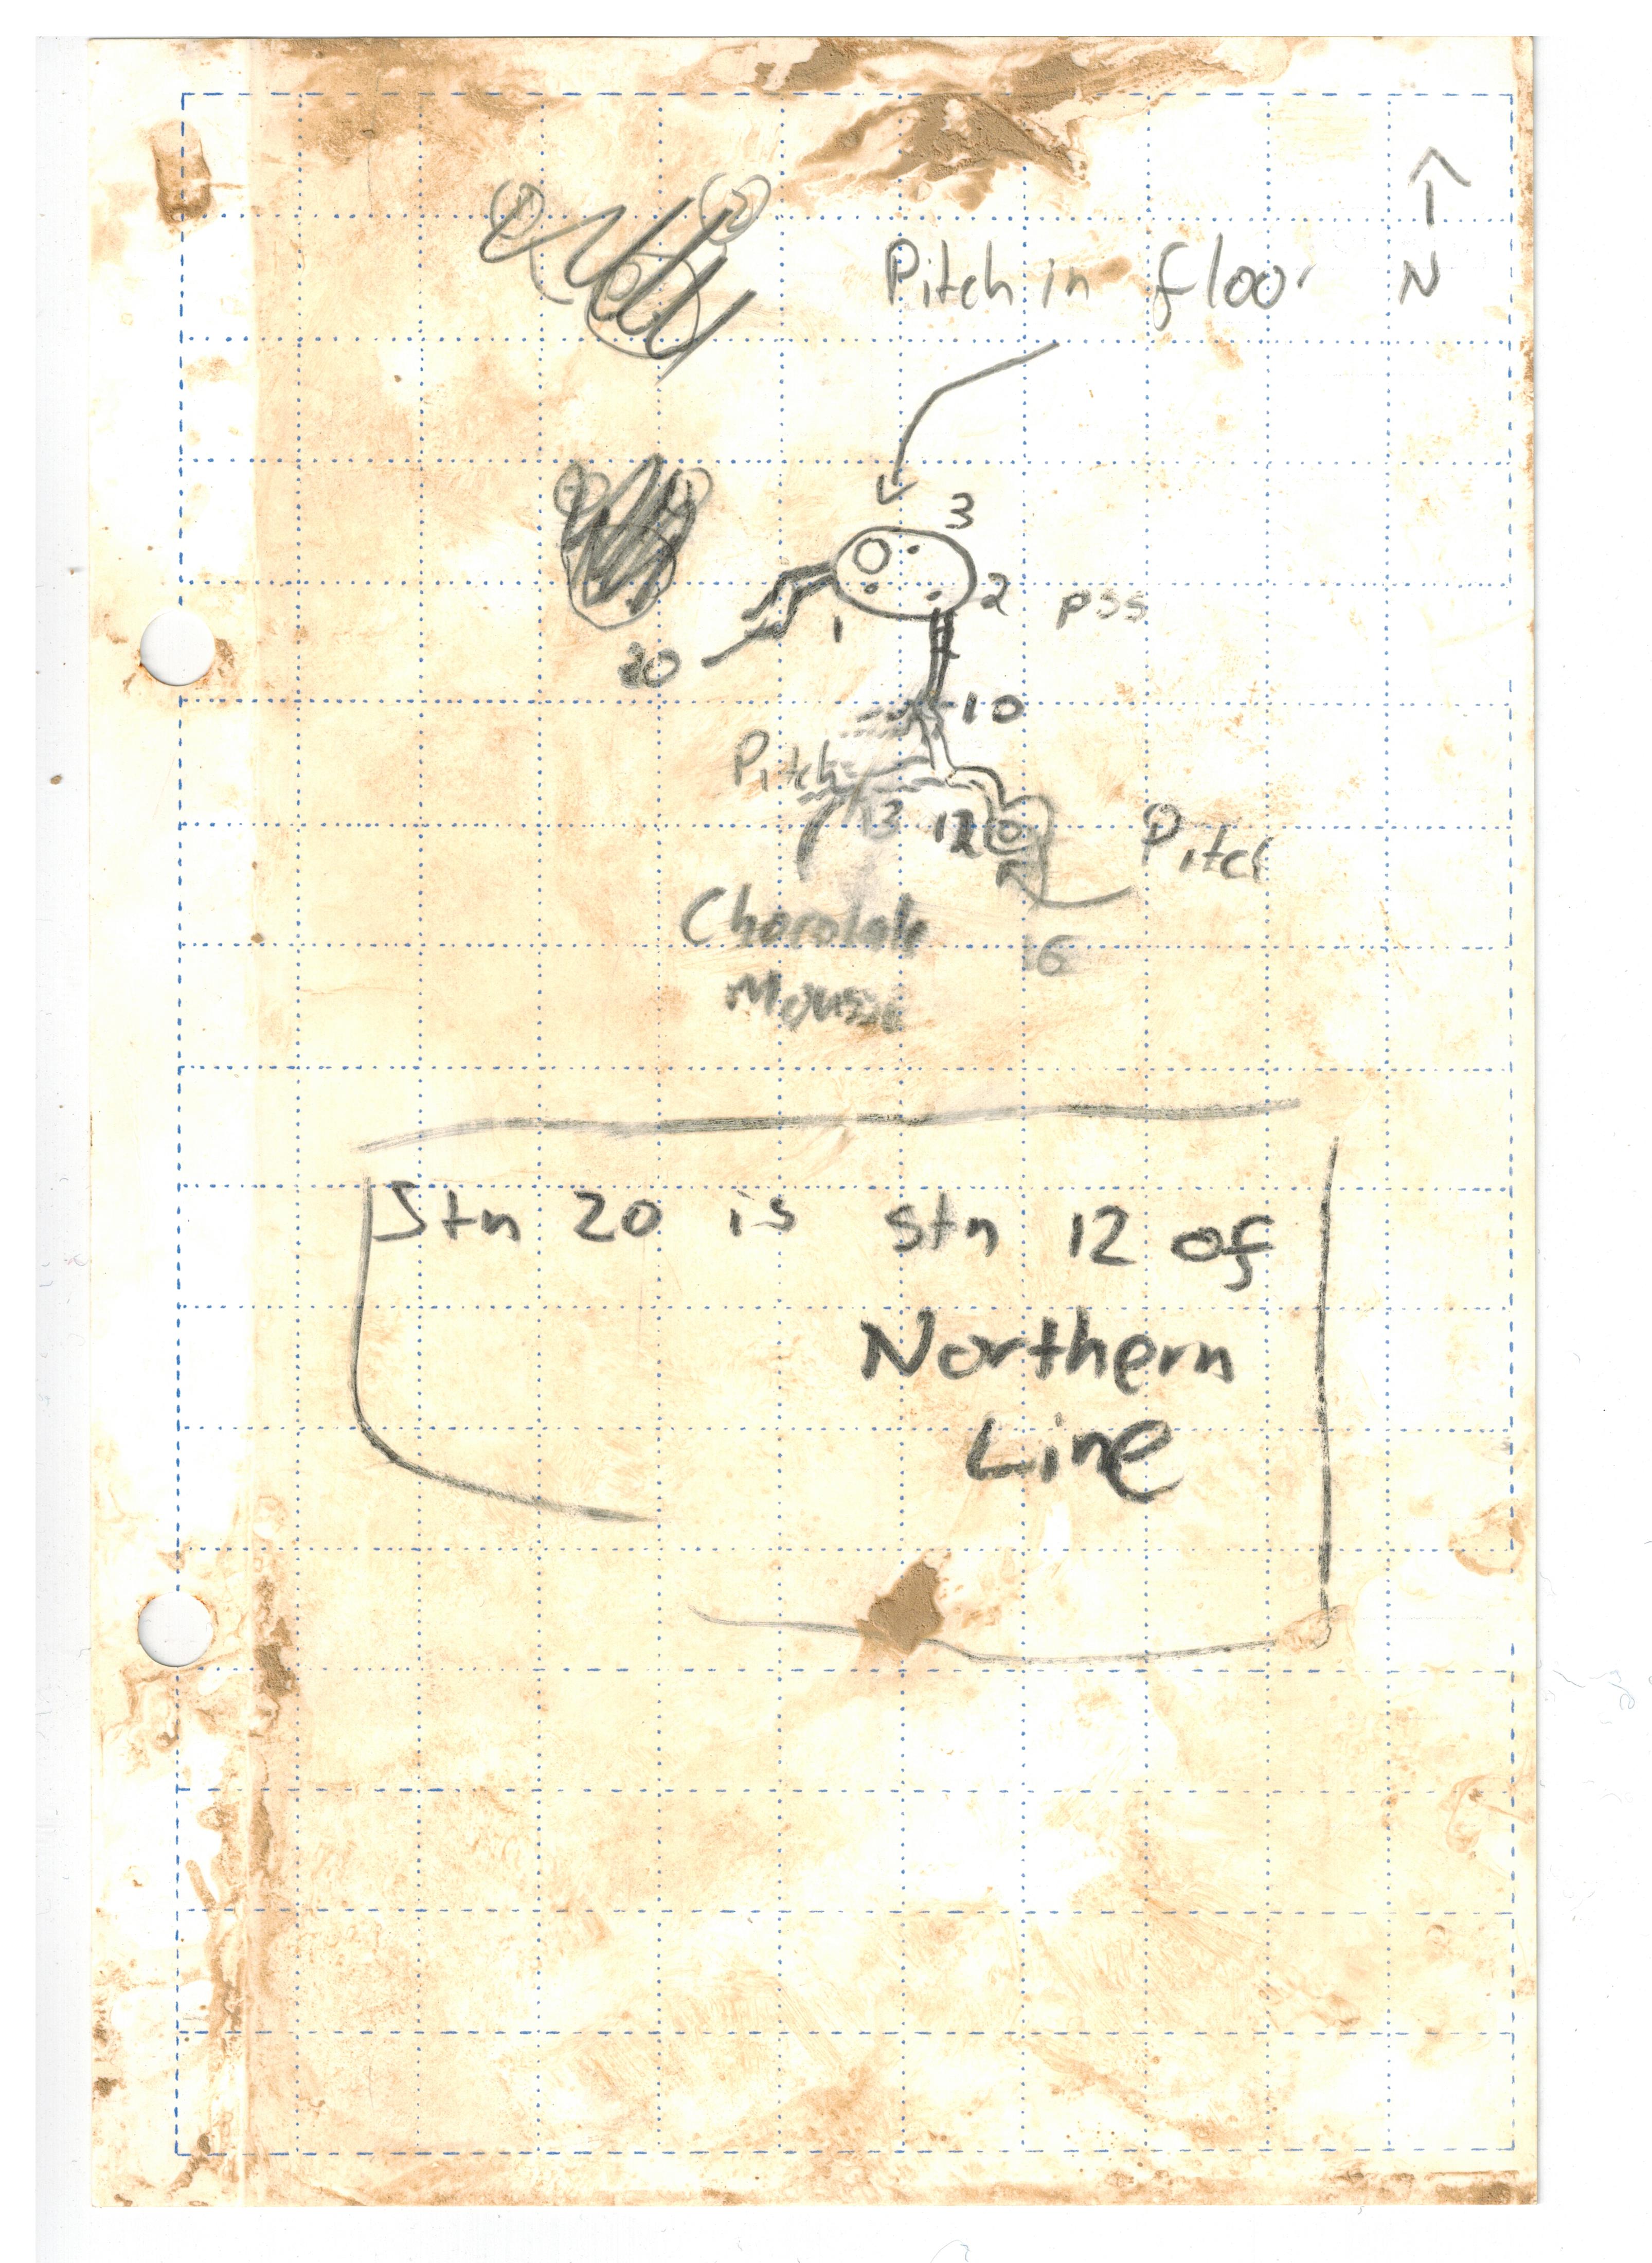 N
Pitch in floor
3
2
pss
1
20
10
Pitch
13
12
Pitch
Chocolate
16
Mousse
Stn 20 is stn 12 of
Northern
Line